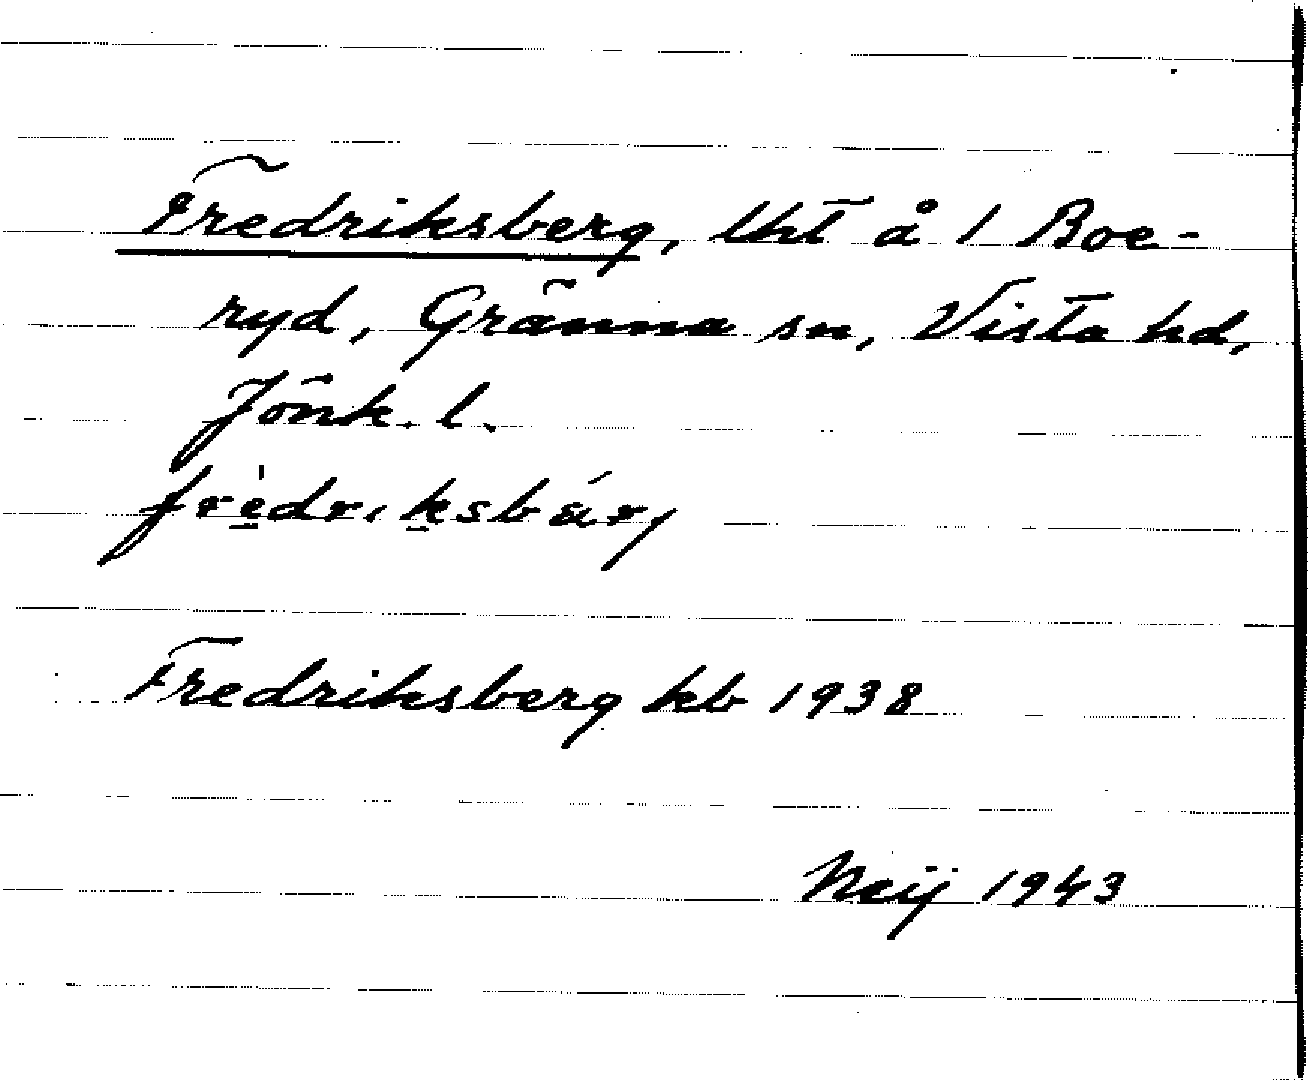 Fredriksberg, lht å 1 Boe-
ryd, Gränna sn, Vista hd,
Jönk. l.
frèdriksbárj
Fredriksberg kb 1938
Neij 1943